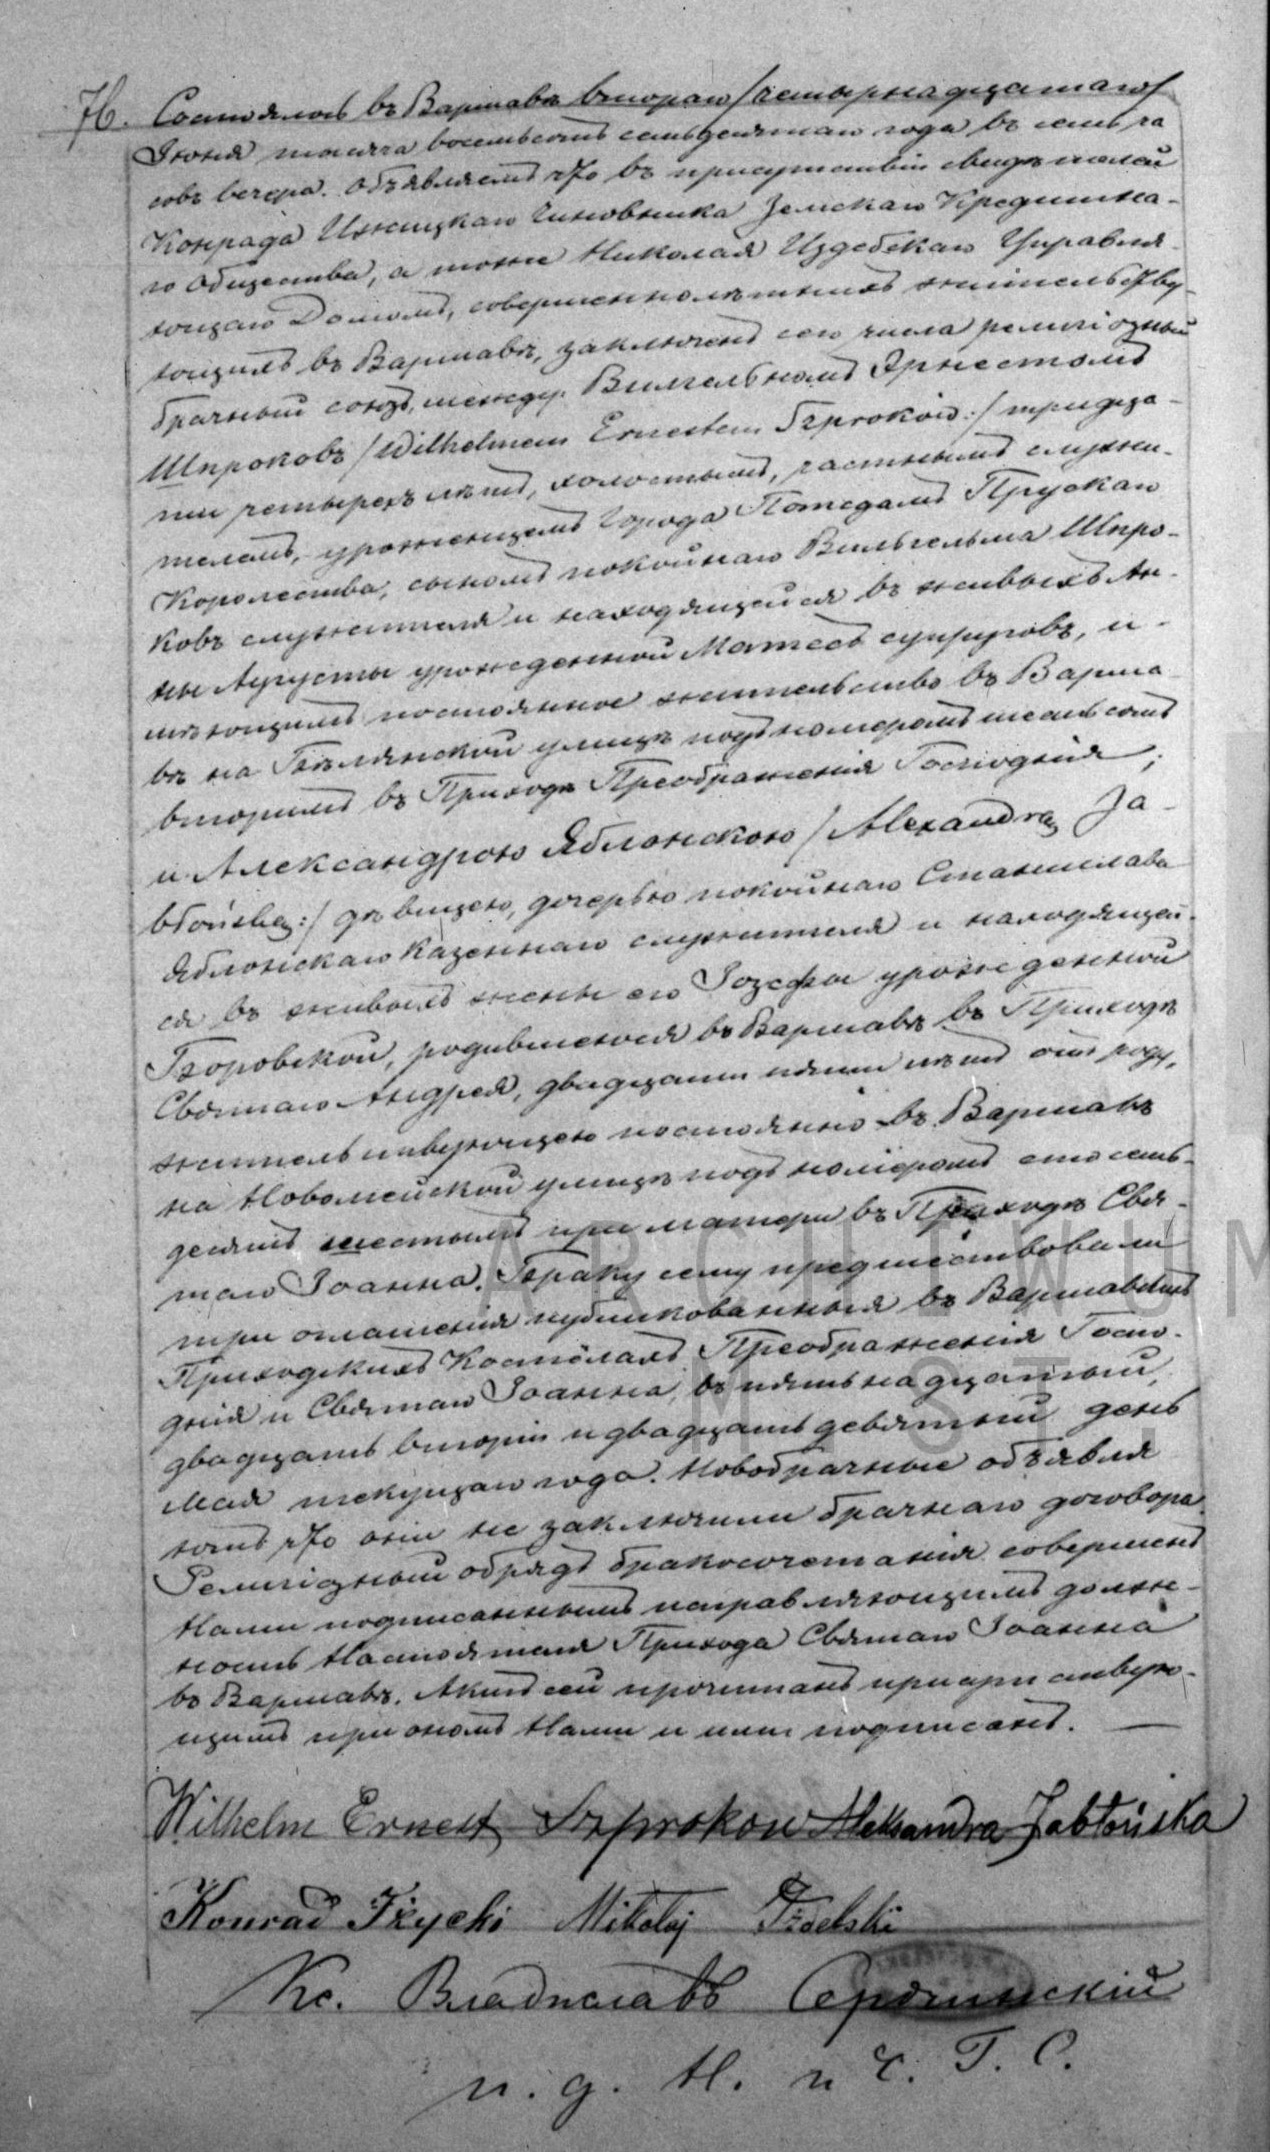 76. Состоялось въ Варшавѣ втораго /четырнадцатаго/
Іюня тысяча восемьсотъ семьдесятаго года въ семь ча
совъ вечера. Объявляемъ что въ присутствіи свидѣтелей
Конрада Ижицкаго Чиновника Земскаго Кредитна-
го Общества, а тоже Николая Издебскаго Управля-
ющаго Домомъ, совершеннолѣтнихъ жительству-
ющихъ въ Варшавѣ, заключенъ сего числа религіозный
брачный союзъ, между Вильгельмомъ Эрнестомъ
Шпроковъ /Wilhelmem Ernestem Szprokow:/ тридца-
ти четырехъ лѣтъ, холостымъ, частнымъ служи-
телемъ, урожденцемъ Города Потсдамъ Прускаго
Королества, сыномъ покойнаго Вильгельма Шпро-
ковъ служителя и находящейся въ живыхъ Ан-
ны Августы урожденной Матесъ супруговъ, и-
мѣющимъ постоянное жительство въ Варша
вѣ на Бѣлянской улицѣ подъ номеромъ шестьсотъ
вторымъ въ Приходѣ Преображенія Господнія;
и Александрою Яблонскою /Alexandrą Ja-
błońską:/ дѣвицею, дочерью покойнаго Станислава
Яблонскаго Казеннаго служителя и находящей-
ся въ живыхъ жены его Іозефы урожденной
Боровской, родившеюся въ Варшавѣ въ Приходѣ
Святаго Андрея, двадцати пяти лѣтъ отъ роду,
жительствующею постоянно въ Варшавѣ
на Новомейской улицѣ подъ номеромъ сто семь-
десятъ шестымъ при матери въ Приходѣ Свя-
таго Іоанна. Браку сему предшествовали
три оглашенія публикованныя въ Варшавскихъ
Приходскихъ Костёлахъ Преображенія Госпо-
дня и Святаго Іоанна, въ пятьнадцатый,
двадцать вторій и двадцать девятый день
Мая текущаго года. Новобрачные объявля
ютъ что они не заключили брачнаго договора
Религіозный обрядъ бракосочетанія совершенъ
Нами подписаннымъ исправляющимъ долж-
ность Настоятеля Прихода Святаго Іоанна
въ Варшавѣ. Актъ сей прочитанъ присутствую-
щимъ при ономъ Нами и ими подписанъ.
Wilhelm Ernest Szprokow Aleksandra Jabłońska
Konrad Iżycki Mikołaj Izdebski
Кс. Владиславъ
и. д. Н. и Ч. Г. С.
ARCHIWUM
M. ST.